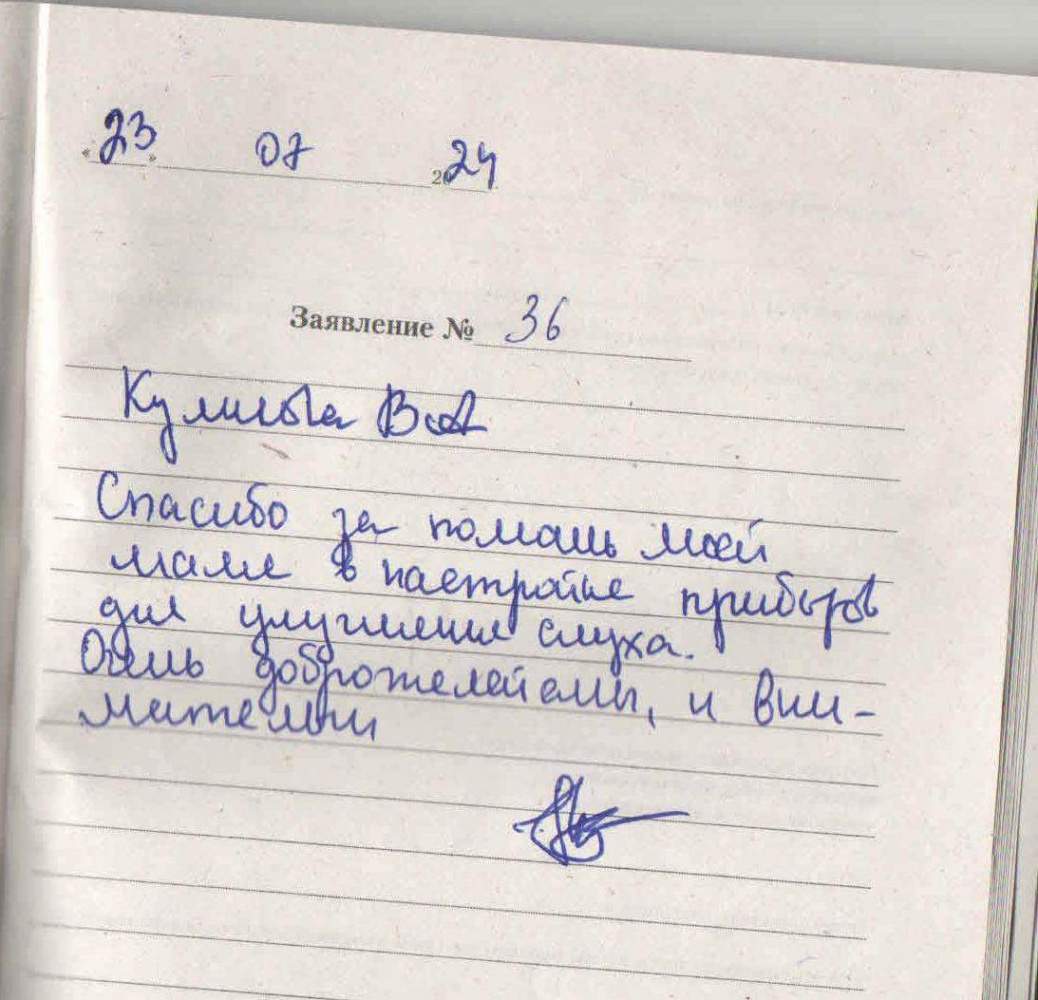 «23» 07 2024
Заявление № 36
Куликова В.А
Спасибо за помощь моей
маме в настройке приборов
для улучшения слуха.
Очень доброжелательны, и вни-
мательны